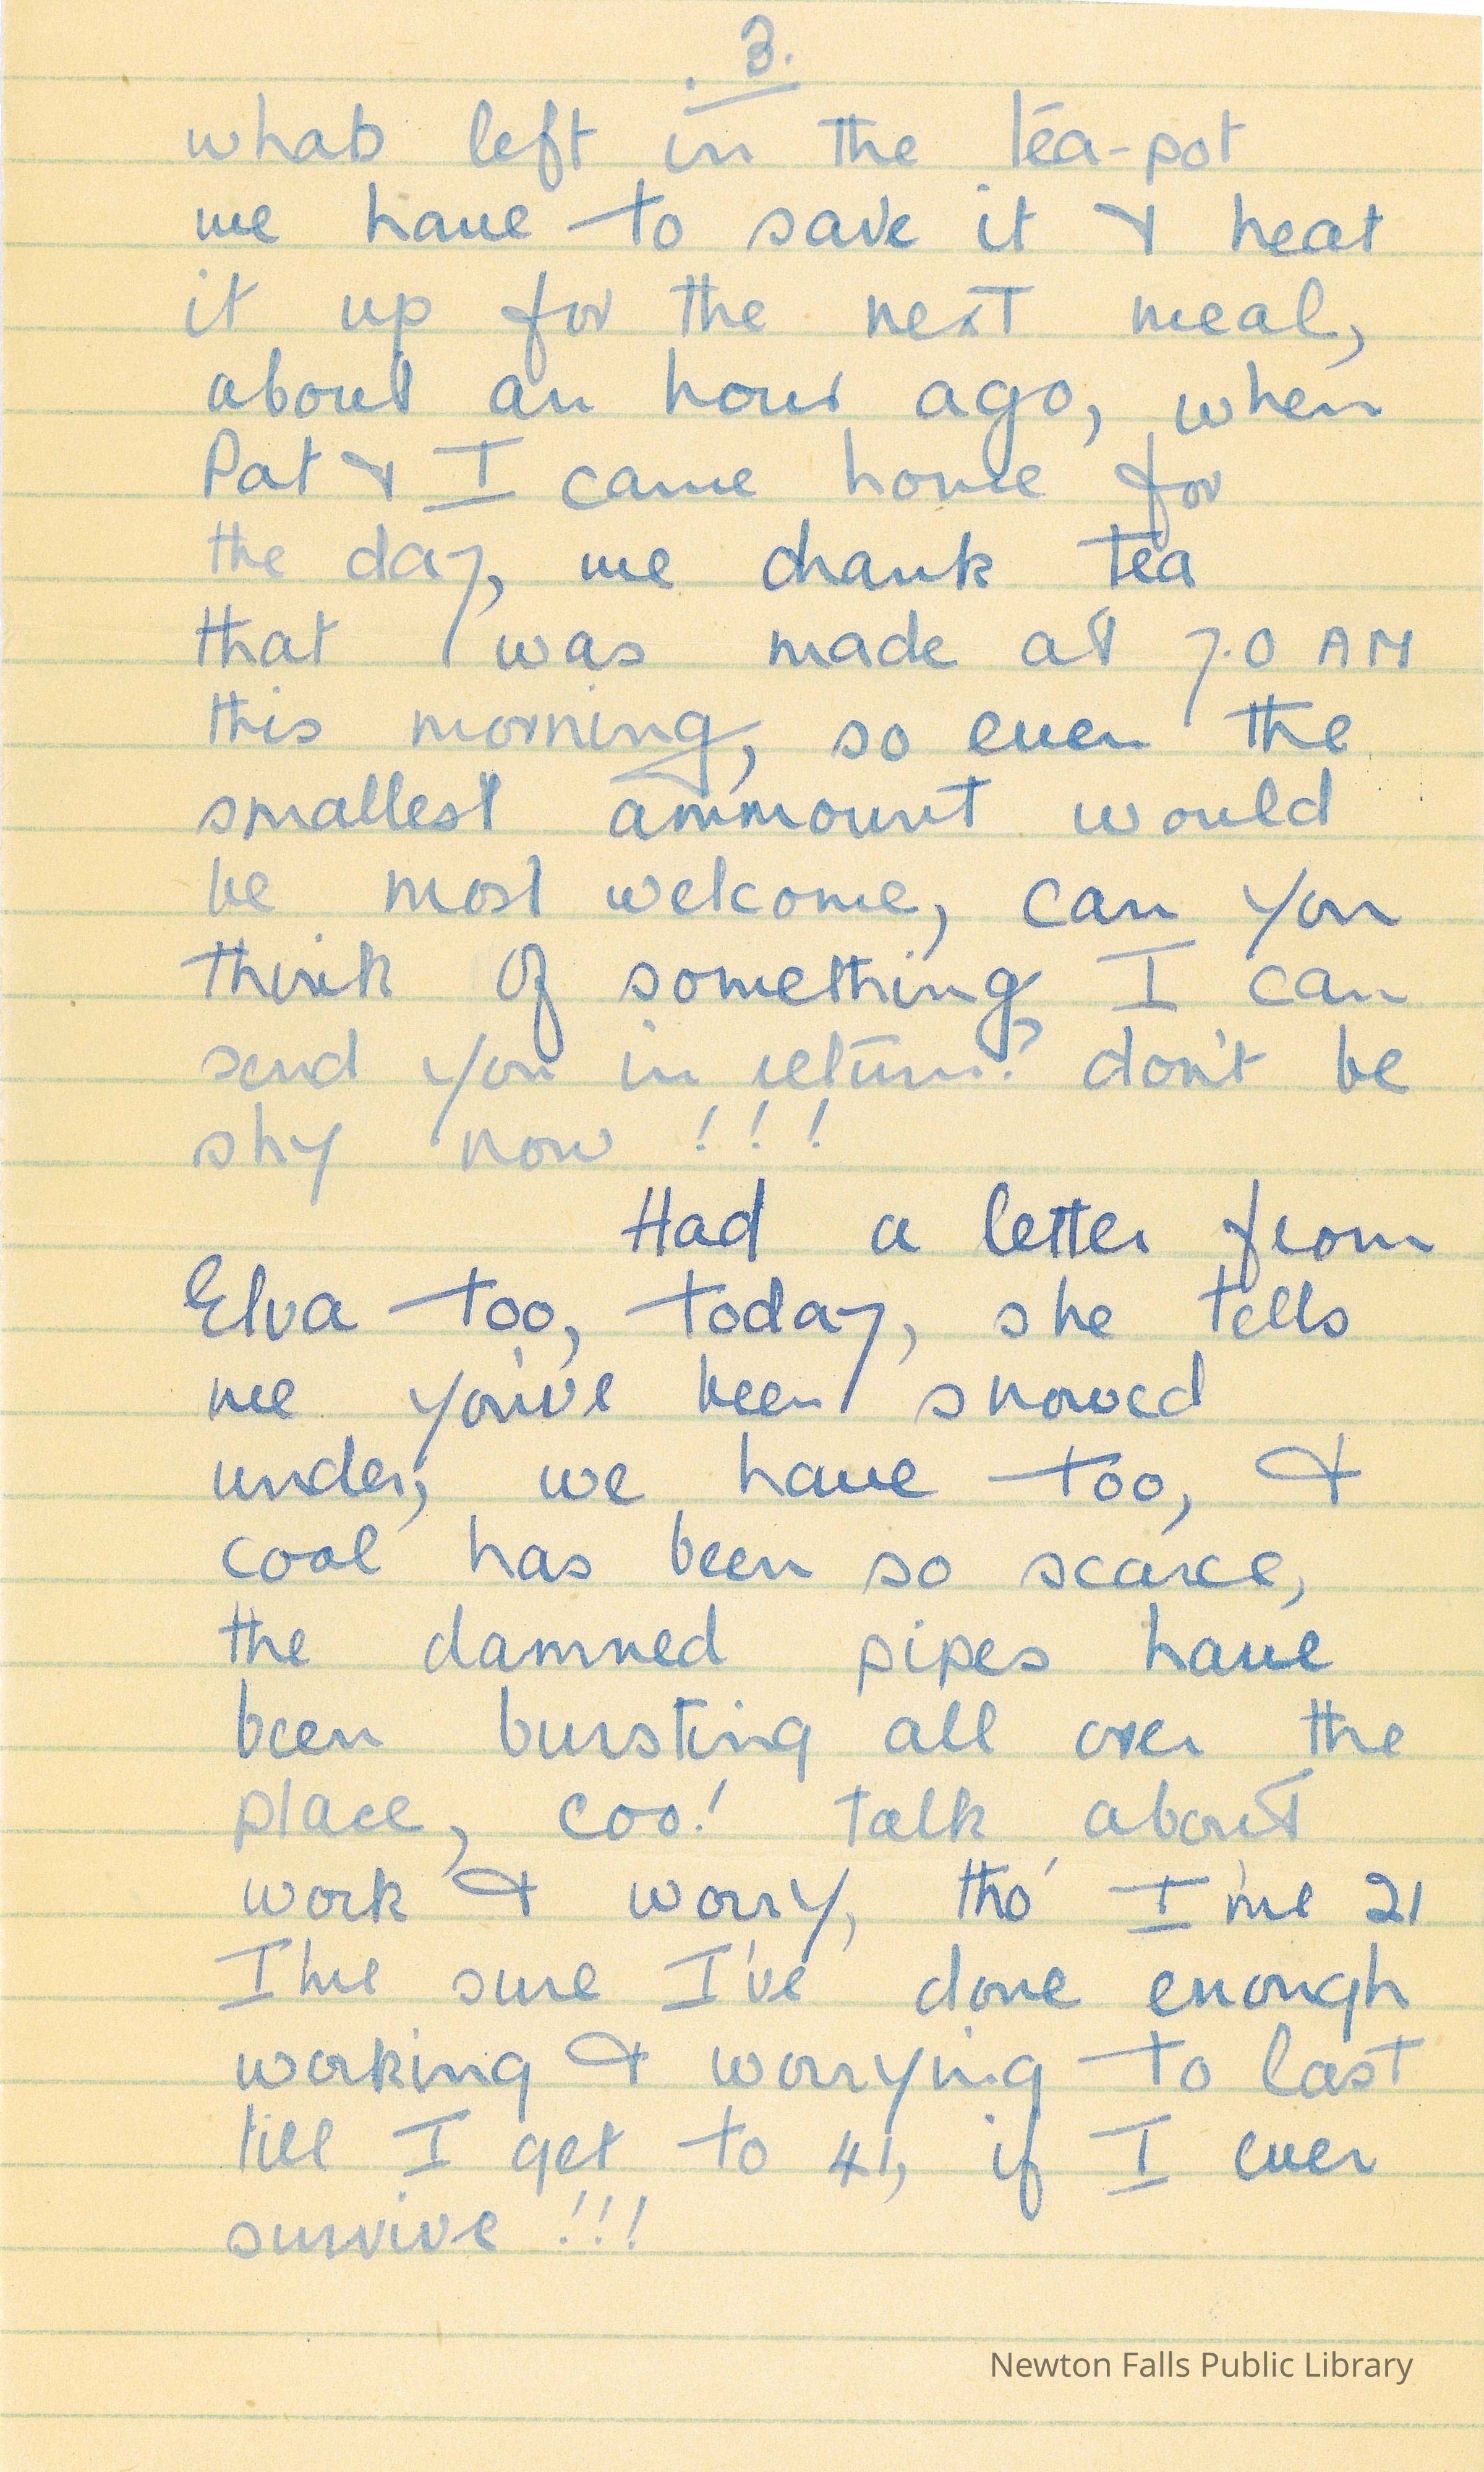 3.
whats left in the tea-pot
we have to save it & heat
it up for the next meal,
about an hour ago, when
Pat & I came home for
the day, we drank tea
that was made at 7.0 AM
this morning, so even the
smallest ammount would
be most welcome, can you
think of something I can
send you in return? don't be
shy now !!!
Had a letter from
Elva too, today, she tells
me you've been snowed
under, we have too, &
coal has been so scarce,
the damned pipes have
been bursting all over the
place, coo! talk about
work & worry, tho' I'me 21
I'me sure I've done enough
working & worrying to last
till I get to 41, if I ever
survive !!!
Newton Falls Public Library